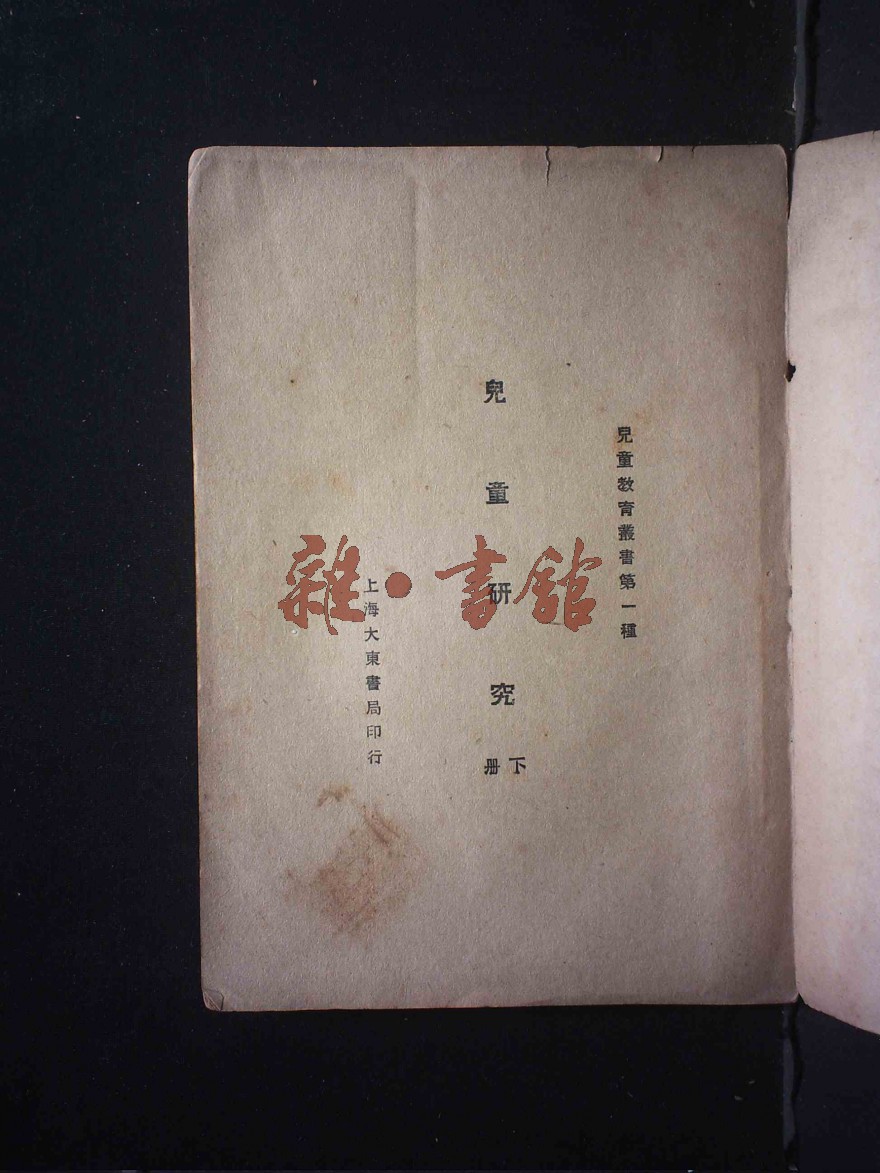 兒童教育叢書第一種
兒童研究
下册
上海大東書局印行
雜·書館